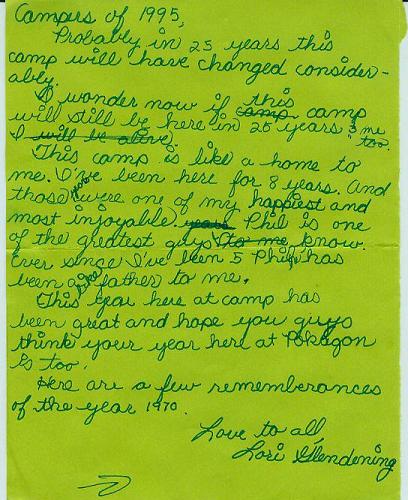 Campers of 1995,
Probably in 25 years this
camp will have changed consider-
ably.
I wonder now if this camp
will still be here in 25 years & me
too.
I will be alive
This camp is like a home to
me. I've been here for 8 years. And
those 8 were one of my happiest and
most injoyable years Phil is one
of the greatest guys to me I know.
Ever since I've been 5 Phil has
been like a father to me.
This year here at camp has
been great and hope you guys
think your year here at Pokagon
is too.
Here are a few rememberances
of the year 1970.
Love to all,
Lori Glendening